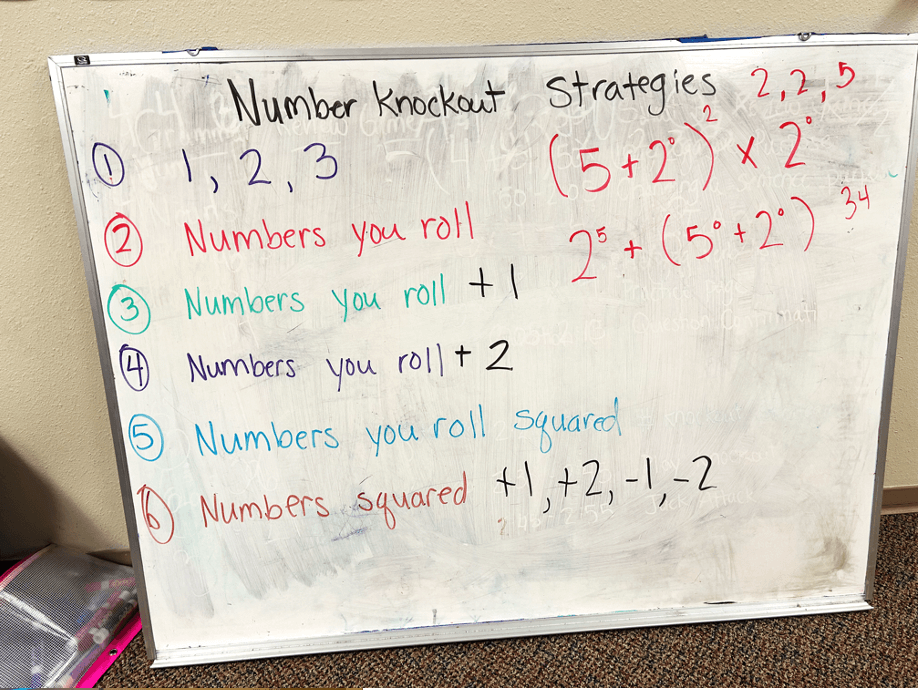 Number Knockout Strategies 2, 2, 5
① 1, 2, 3
(5 + 2⁰)² × 2⁰
② Numbers you roll
2⁵ + (5⁰ + 2⁰) 34
③ Numbers you roll +1
④ Numbers you roll + 2
⑤ Numbers you roll squared
⑥ Numbers squared +1, +2, -1, -2